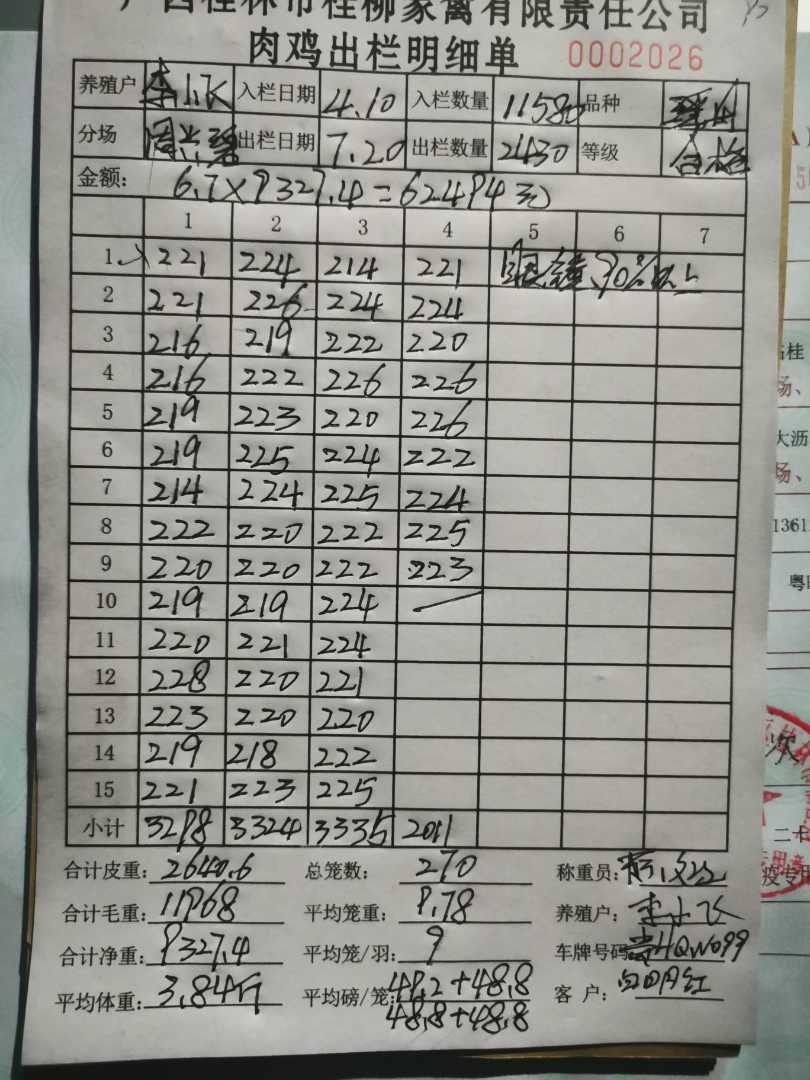 广西桂林市桂柳家禽有限责任公司
肉鸡出栏明细单 0002026
养殖户 李小飞 入栏日期 4.10 入栏数量 11580 品种
分场 出栏日期 7.20 出栏数量 2430 等级 合格
金额: 6.7×9327.4=62494元
1 2 3 4 5 6 7
1 221 224 214 221 90%以上
2 221 226 224 224
3 216 219 222 220
4 216 222 226 226
5 219 223 220 226
6 219 225 224 222
7 214 224 225 224
8 222 220 222 225
9 220 220 222 223
10 219 219 224 —
11 220 221 224
12 228 220 221
13 223 220 220
14 219 218 222
15 221 223 225
小计 3298 3324 3335 2011
合计皮重: 2640.6 总笼数: 270 称重员:
合计毛重: 11968 平均笼重: 9.78 养殖户: 李小飞
合计净重: 9327.4 平均笼/羽: 9 车牌号码: HQW099
平均体重: 3.84斤 平均磅/笼: 49.2+48.8 客户:
48.8+48.8
临桂
场、
大沥
场、
1361
粤
二十
疫专用